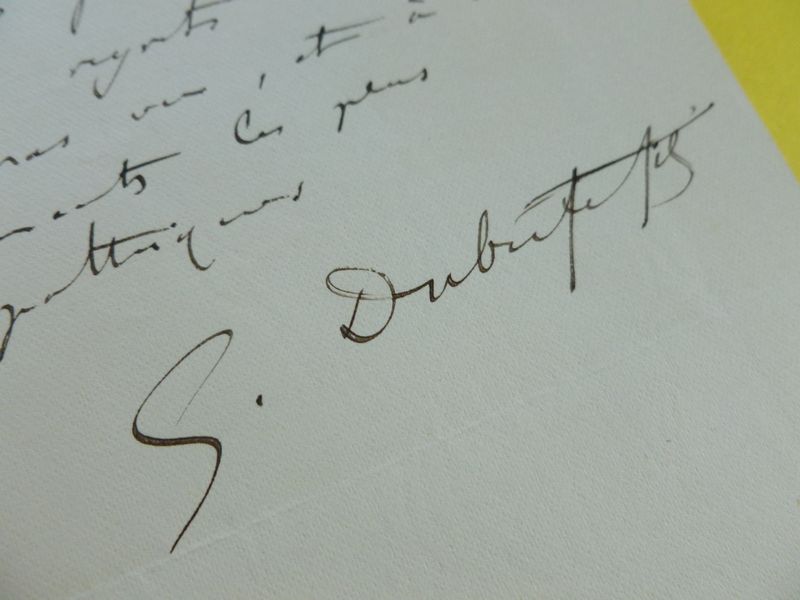 regrets
vous, et à
les plus
pathiques
G. Dubufe fils